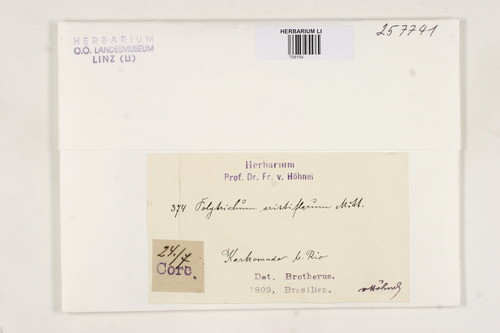 HERBARIUM
O.Ö. LANDESMUSEUM
LINZ (LI)
HERBARIUM LI
257741
Herbarium
Prof. Dr. Fr. v. Höhnel
374 Polytrichum aristiflorum Mitt.
24/7
Corc.
Korkowado b. Rio
Det. Brotherus.
1899. Brasilien.
v Höhnel